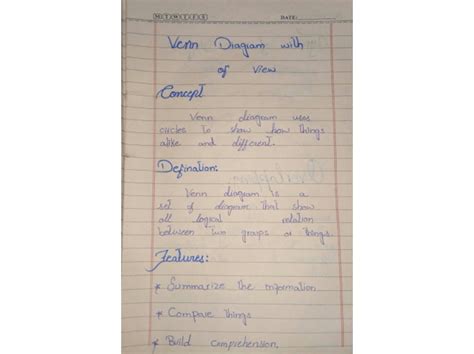 M T W T F S
DATE:
Venn Diagram with
of View
Concept
Venn diagram uses
circles to show how things
alike and different.
Defination:
Venn diagram is a
set of diagram that show
all logical relation
between two groups or things.
Features:
* Summarize the information
* Compare things
* Build comprehension.